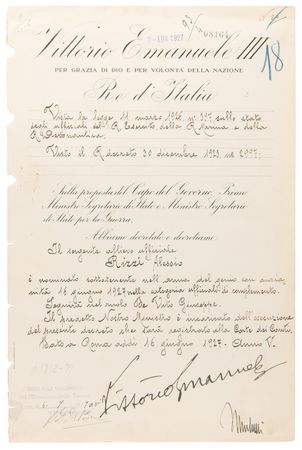 1 LUG 1927
08164
18
Vittorio Emanuele III
PER GRAZIA DI DIO E PER VOLONTÀ DELLA NAZIONE
Re d'Italia
Vista la legge 11 marzo 1926, n° 397, sullo stato
degli ufficiali del R. Esercito, della R. Marina e della
R. Aeronautica;
Visto il R. decreto 30 dicembre 1923, n° 2997;
Sulla proposta del Capo del Governo, Primo
Ministro Segretario di Stato e Ministro Segretario
di Stato per la Guerra;
Abbiamo decretato e decretiamo:
Il sergente allievo ufficiale
Rizzi Alessio
è nominato sottotenente nell'arma del genio con anzia
nità 16 giugno 1927 nella categoria ufficiali di complemento.
Seguirà nel ruolo De Vito Giuseppe.
Il predetto Nostro Ministro è incaricato dell'esecuzione
del presente decreto che sarà registrato alla Corte dei Conti.
Dato a Roma addì 16 giugno 1927 - Anno V.
Vittorio Emanuele
Mussolini